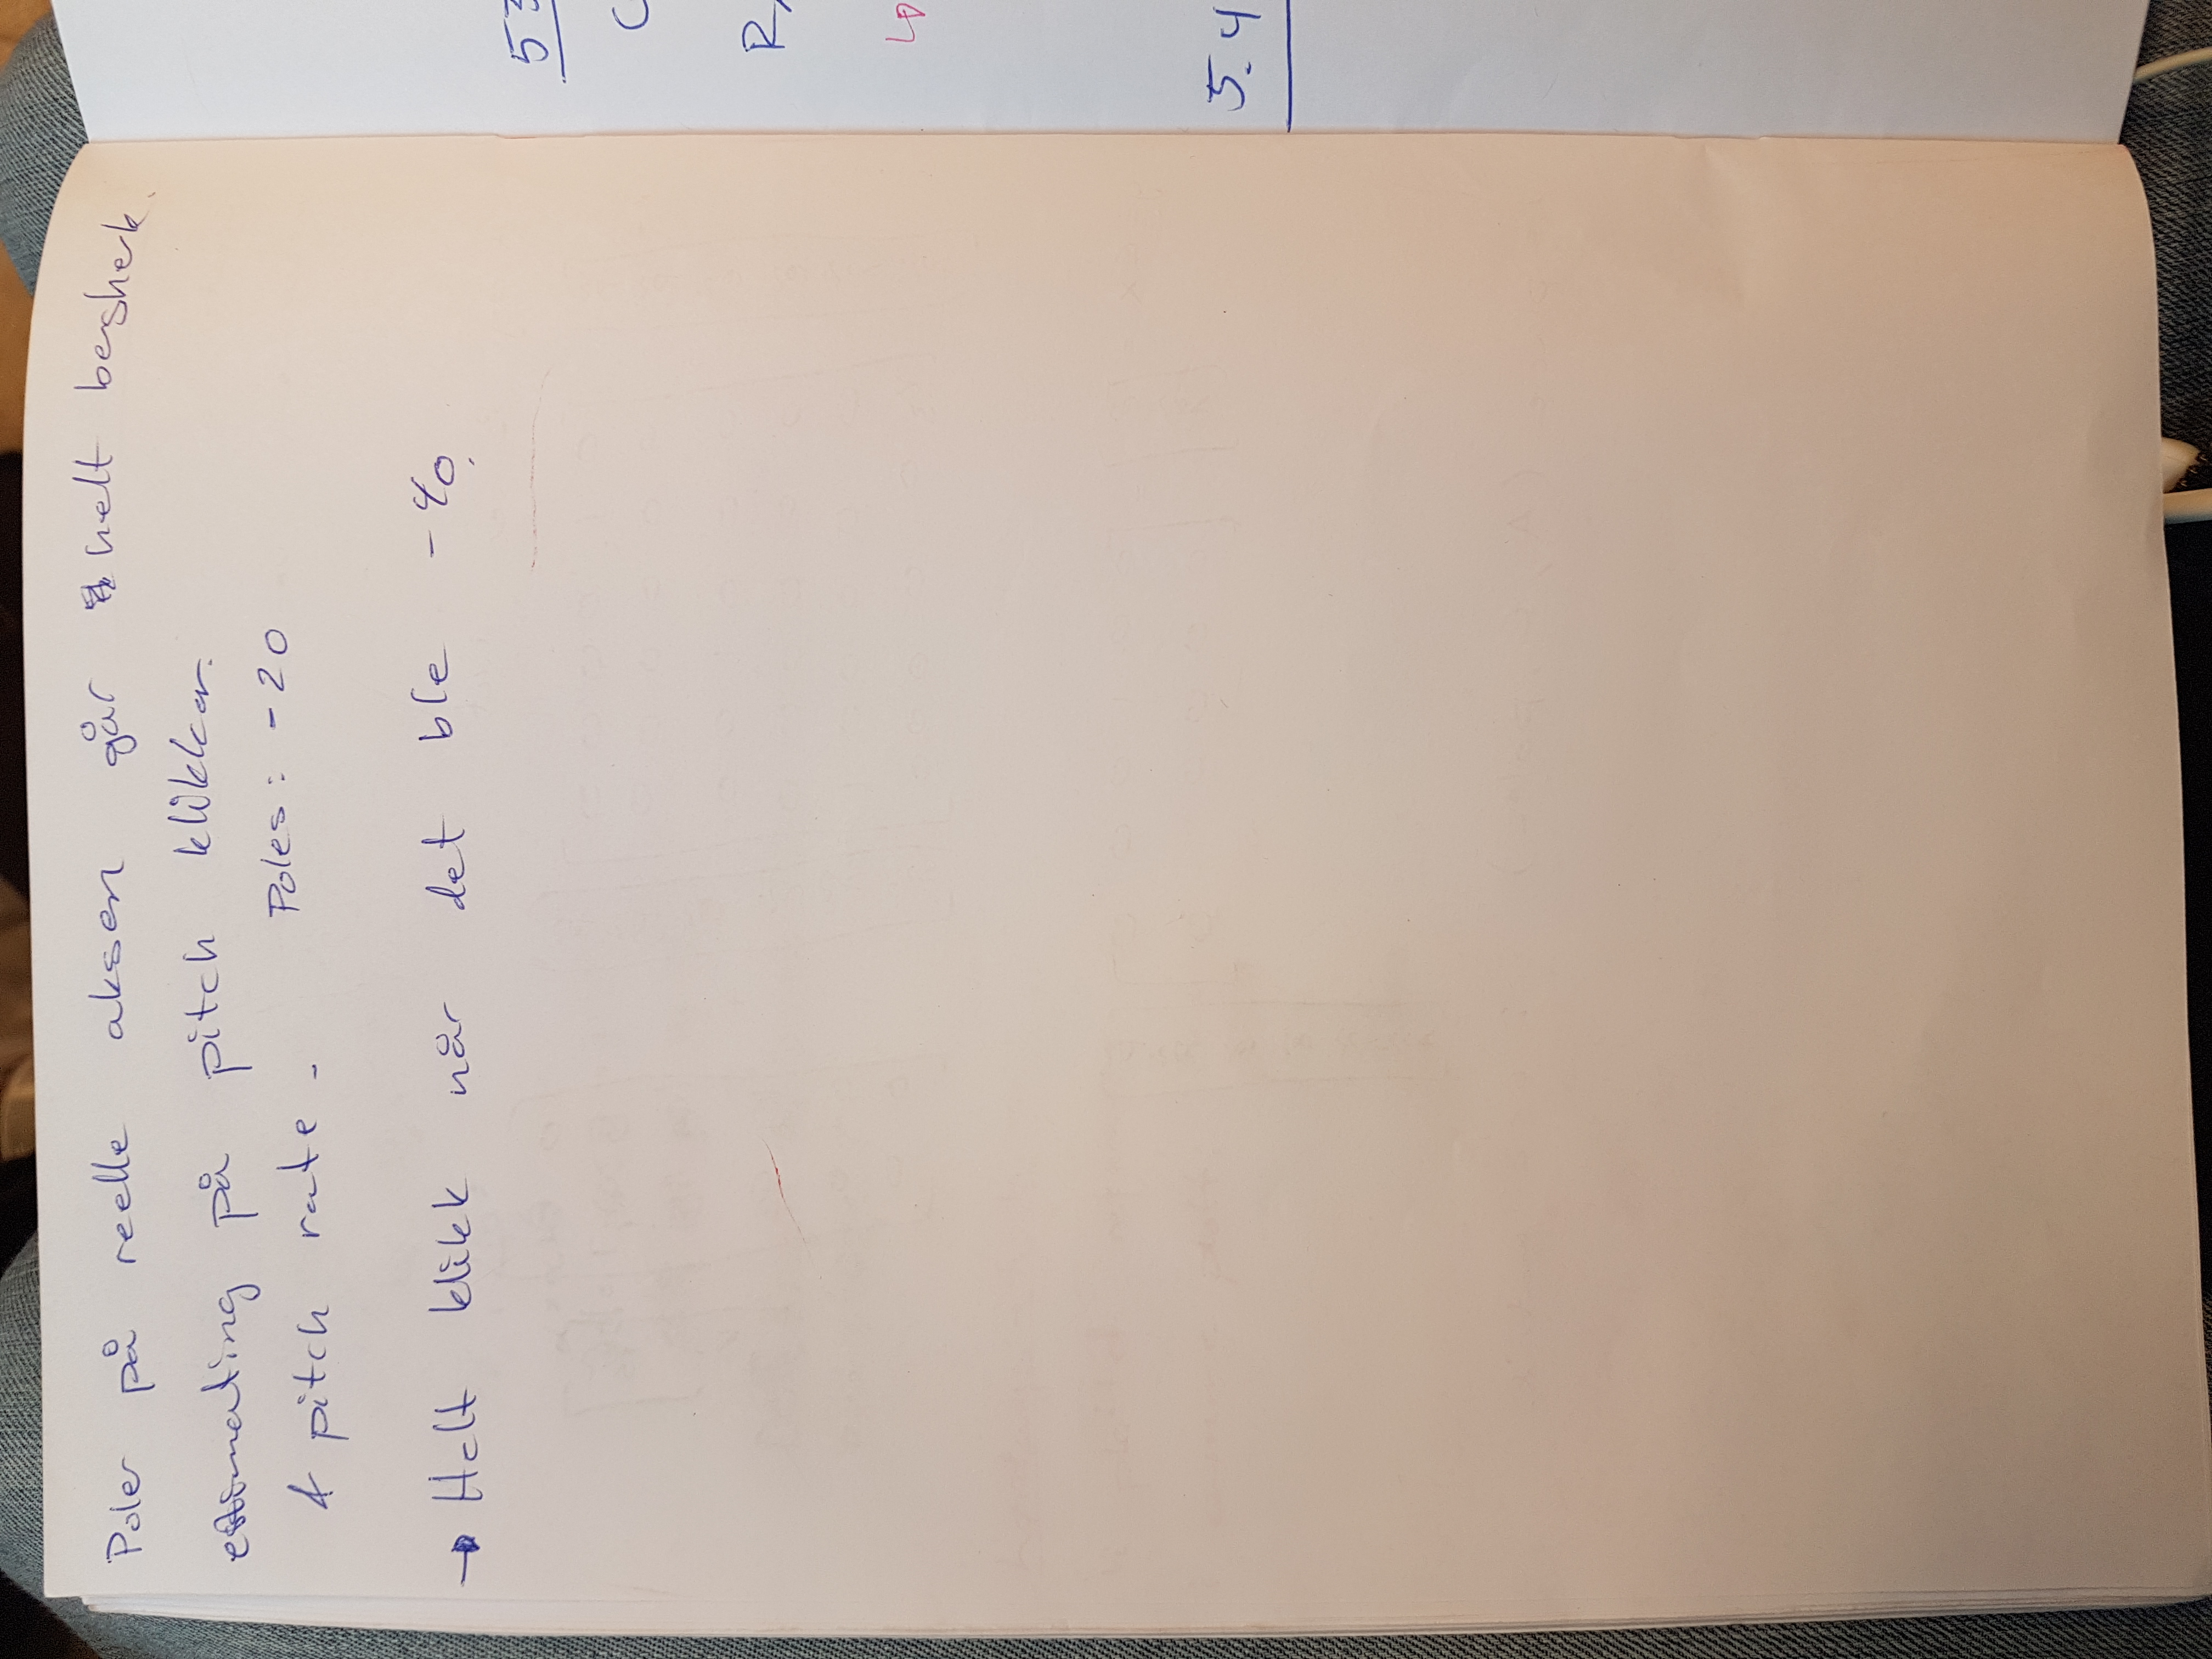 Poler på reelle aksen går helt bersherk.
estimating på pitch klikker.
& pitch rate. Poles: -20
→ Helt klikk når det ble -40.
53
C
R
5.4